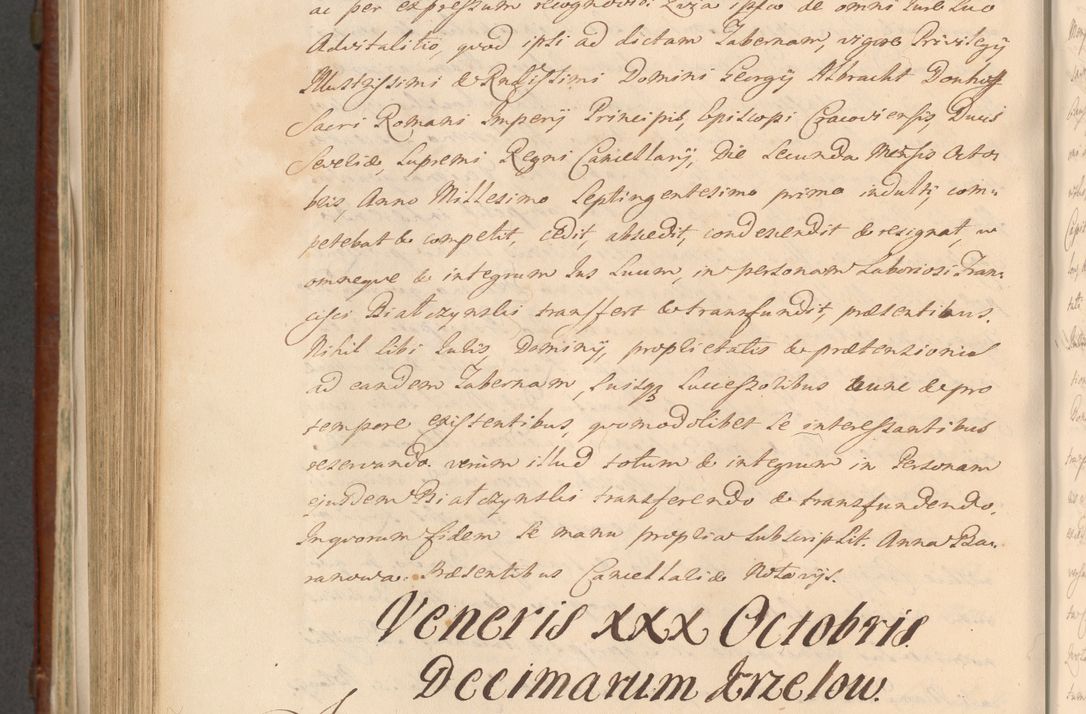 ac per expressum recognovit Quia ipsa de omni Jure suo
Advitalitio, quod ipsi ad dictam Tabernam, vigore Privilegij
Illustrissimi & Rndissimi Domini Georgij Albracht Donhoff
Sacri Romani Imperij Principis, Episcopi Cracoviensis, Ducis
Severiæ, Supremi Regni Cancellarij, Die Secunda Mensis Octo
bris, Anno Millesimo Septingentesimo primo indulti, com=
petebat & competit, cedit, abscedit, condescendit & resignat, ac
omneque & integrum Jus Suum, in personam Laboriosi Fran=
cisci Białczynski transfert & transfundit, præsentibus.
Nihil sibi Iuris, Dominij, proprietatis & prætensionis
ad eandem Tabernam, Suisq Successoribus tunc & pro
tempore existentibus, quomodolibet se interessantibus
reservando. verum illud totum & integrum in Personam
ejusdem Białczynski transferendo & transfundendo.
In quorum fidem se manu propria subscripsit. Anna Ba=
ranowa. Præsentibus Cancellariæ Notarijs.
Veneris XXX Octobris.
Decimarum Strzelow.